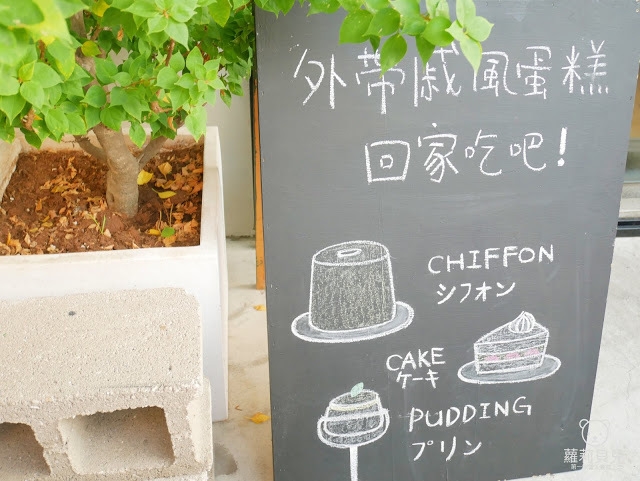 外帶戚風蛋糕
回家吃吧!
CHIFFON
シフォン
CAKE
ケーキ
PUDDING
プリン